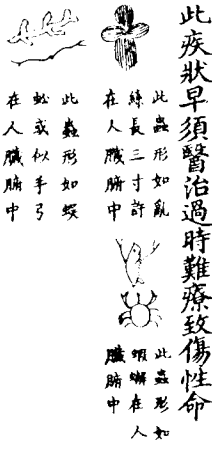 此疾狀早須醫治過時難療致傷性命
此蟲形如亂
絲長三寸許
在人臟腑中
此蟲形如
蝦蠏在人
臟腑中
此蟲形如蜈
蚣或似手弓
在人臟腑中